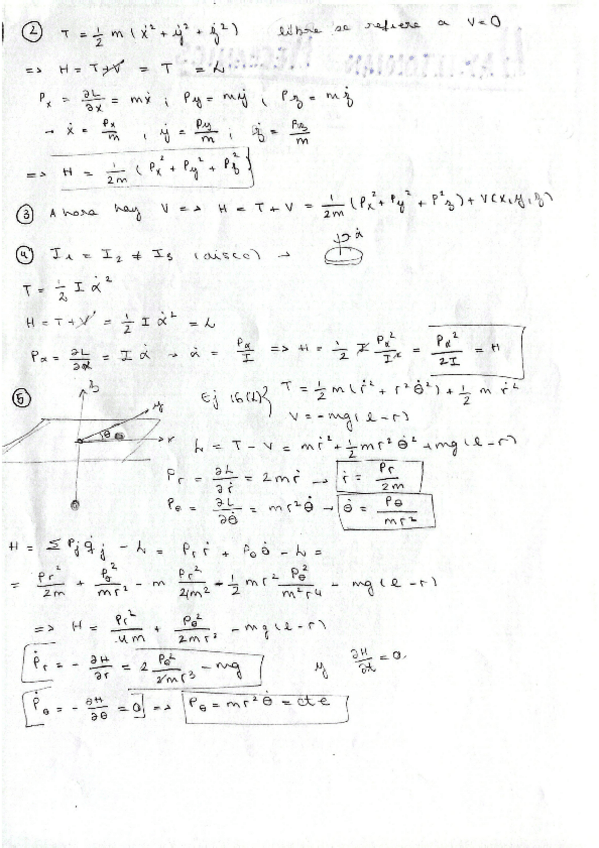 ② T = 1/2 m (ẋ² + ẏ² + ż²) libre se refiere a V=0
=> H = T+V = T = L
Px = ∂L/∂ẋ = mẋ ; Py = mẏ ; Pz = mż
→ ẋ = Px/m , ẏ = Py/m ; ż = Pz/m
=> H = 1/2m (Px² + Py² + Pz²)
③ Ahora hay V => H = T + V = 1/2m (Px² + Py² + P²z) + V(x,y,z)
④ I₁ = I₂ ≠ I₃ (disco) → α̇
T = 1/2 I α̇²
H = T+V = 1/2 I α̇² = L
Pα = ∂L/∂α̇ = I α̇ → α̇ = Pα/I => H = 1/2 I Pα²/I² = Pα²/2I = H
⑤ z y θ r
Ej 16(L) } T = 1/2 m (ṙ² + r² θ̇²) + 1/2 m ṙ²
V = -mg(l-r)
L = T - V = mṙ² + 1/2 mr² θ̇² + mg(l-r)
Pr = ∂L/∂ṙ = 2mṙ → ṙ = Pr/2m
Pθ = ∂L/∂θ̇ = mr² θ̇ → θ̇ = Pθ/mr²
H = Σ Pj q̇j - L = Pr ṙ + Pθ θ̇ - L =
= Pr²/2m + Pθ²/mr² - m Pr²/4m² - 1/2 mr² Pθ²/m²r⁴ - mg(l-r)
=> H = Pr²/4m + Pθ²/2mr² - mg(l-r)
Ṗr = - ∂H/∂r = 2 Pθ²/2mr³ - mg y ∂H/∂t = 0
Ṗθ = - ∂H/∂θ = 0 => Pθ = mr² θ̇ = cte